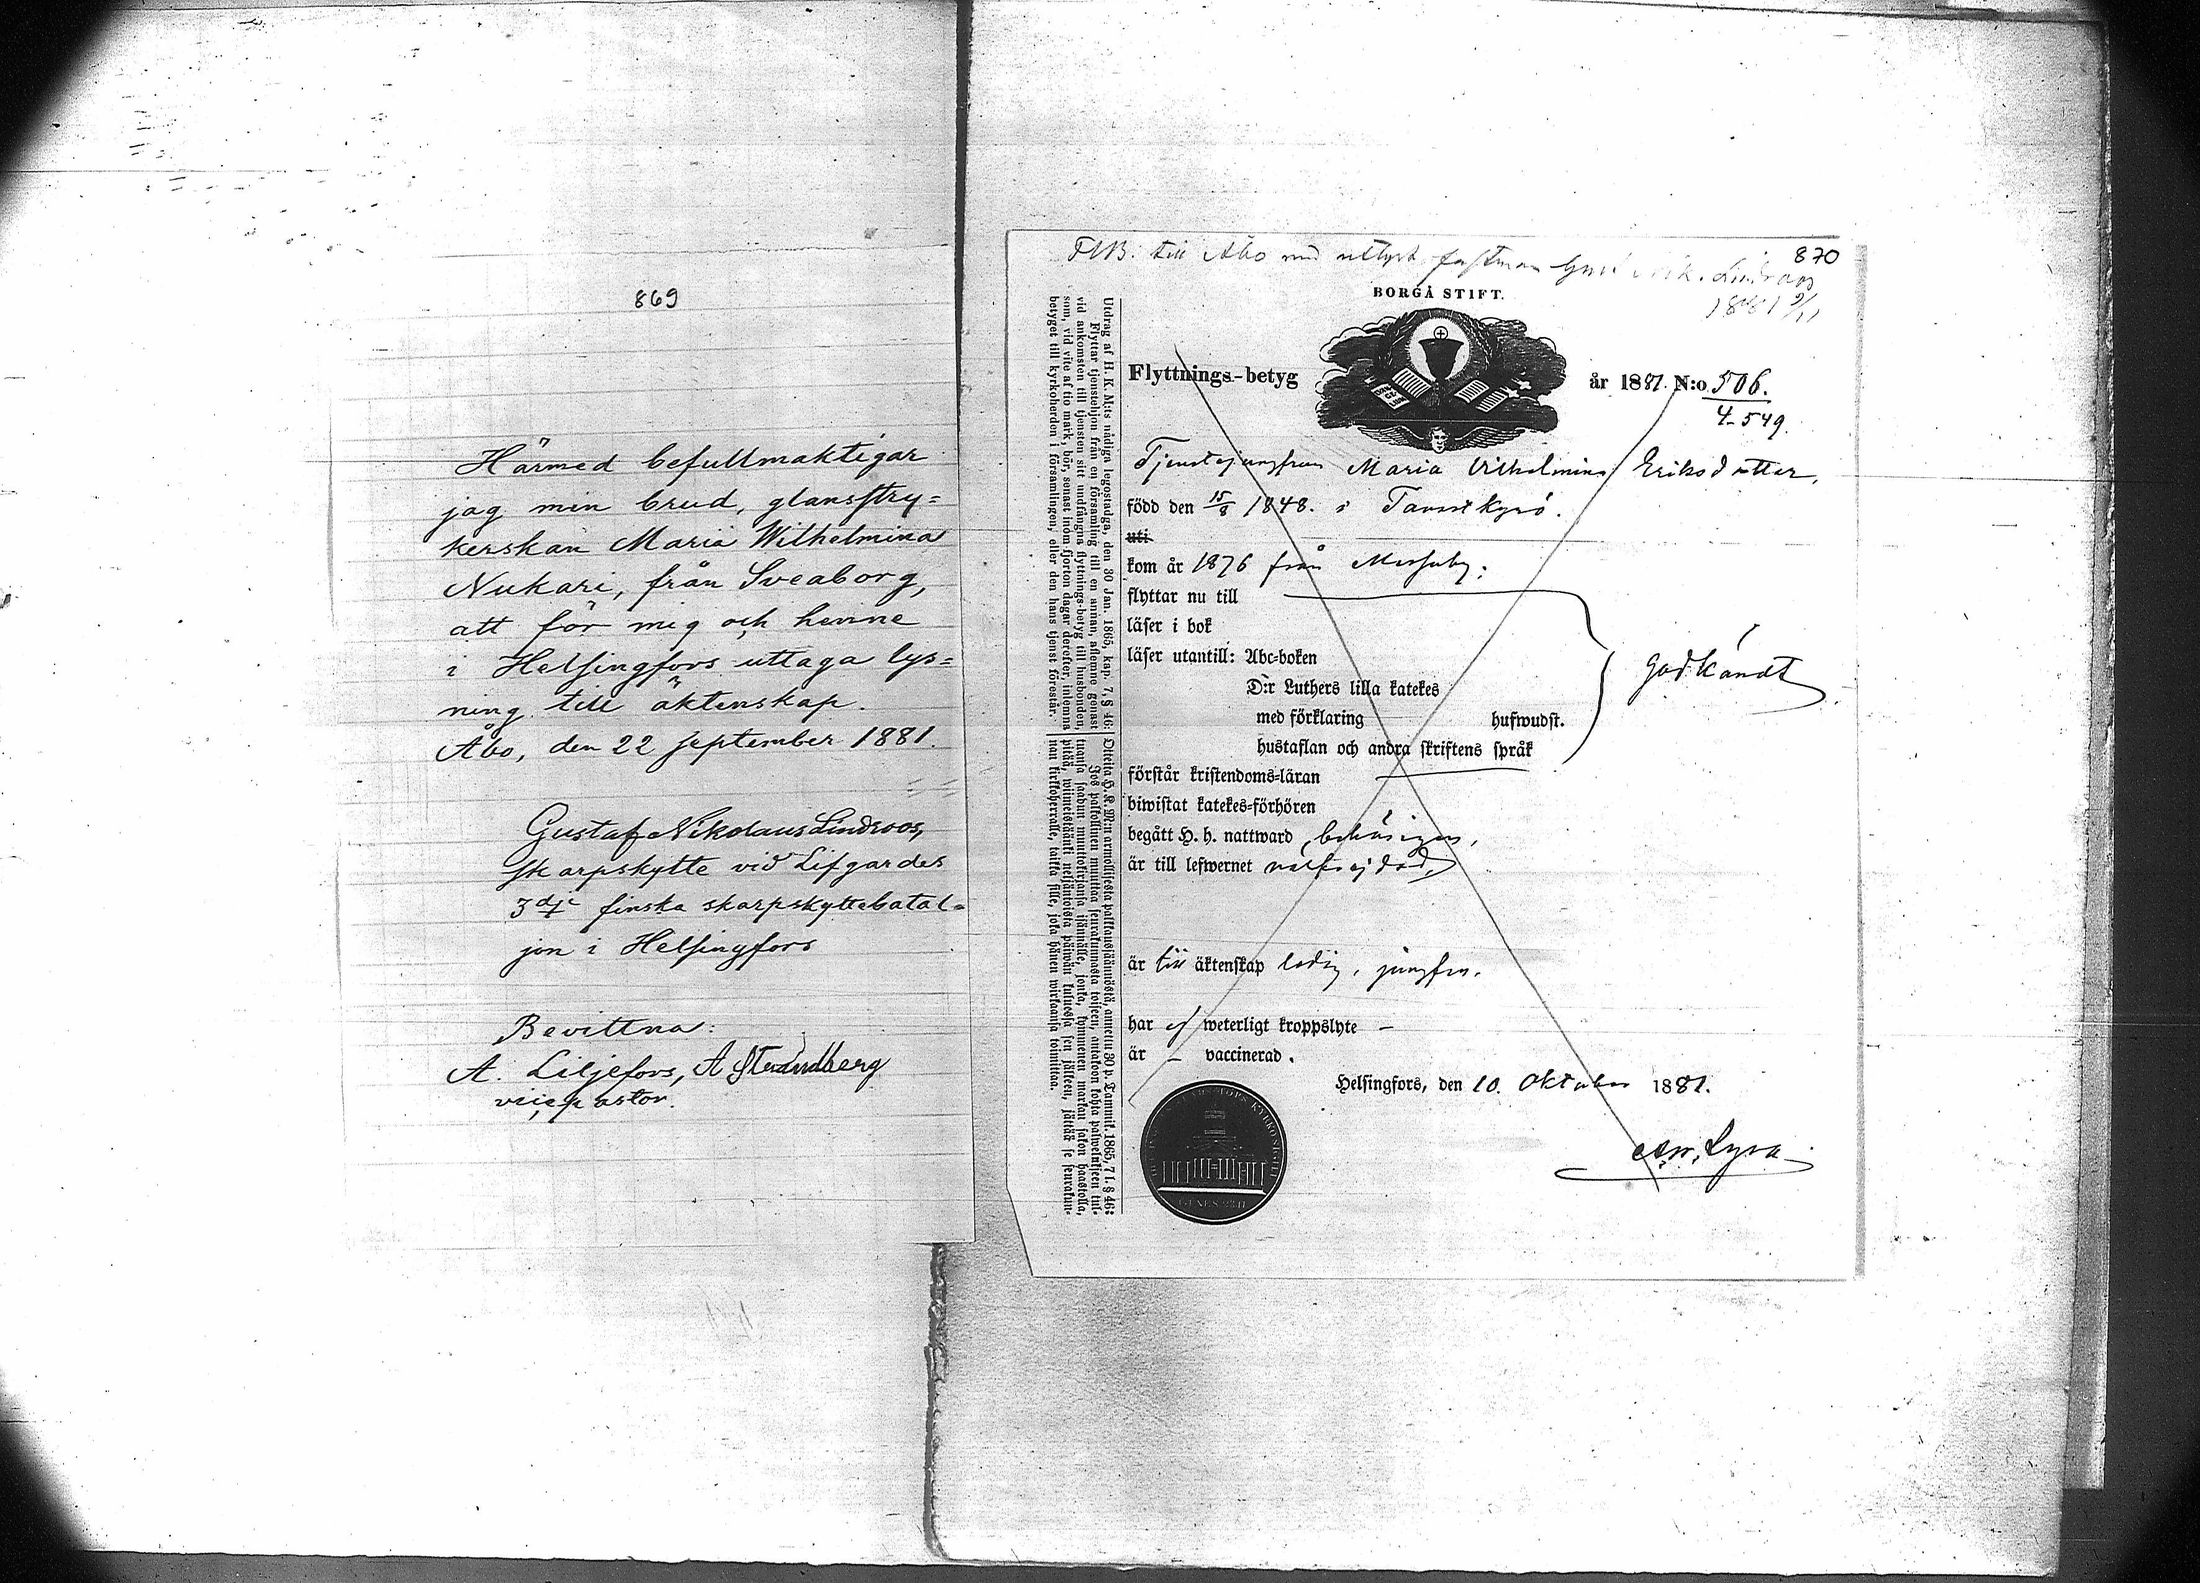 869
Härmed befullmäktigar
jag min brud, glansstry=
kerskan Maria Wilhelmina
Nukari, från Sveaborg,
att för mig och henne
i Helsingfors uttaga lys=
ning till äktenskap.
Åbo, den 22 september 1881.
Gustaf Nikolaus Lindroos,
skarpskytte vid Lifgardes
3dje finska skarpskyttebatal=
jon i Helsingfors
Bevittna:
A. Liljefors, A Strandberg
vicepastor.
870
FlB. till Åbo med utlyst fästman Gust. Nik. Lindroos
1881 9/11
BORGÅ STIFT.
Flyttnings-betyg år 1881 N:o 506.
4-549.
Tjenstejungfrun Maria Vilhelmina Eriksdotter,
född den 15/8 1848. i Tavastkyrö.
uti
kom år 1876 från Messuby;
flyttar nu till
läser i bok
läser utantill: Abc-boken
D:r Luthers lilla katekes
med förklaring hufwudst.
hustaflan och andra skriftens språk
godkändt
förstår kristendoms-läran
biwistat katekes-förhören
begått H. h. nattward behörigen,
är till lefwernet
är till äktenskap ledig, jungfru.
har ej weterligt kroppslyte –
är – vaccinerad.
Helsingfors, den 10. Oktober 1881.
Lyra
Utdrag af H. K. M:ts nådiga legostadga, den 30 Jan. 1865, kap. 7, § 46:
Flyttar tjenstehjon från en församling till en annan, aflemne genast
vid ankomsten till tjensten sitt undfångna flyttnings-betyg till husbonden,
som, vid vite af tio mark, bör, senast inom fjorton dagar derefter, inlemna
betyget till kyrkoherden i församlingen, eller den hans tjenst förestår.
Otteita H. K. M:n armollisesta palkkaussäännöstä, annettu 30 p. Tammik. 1865, 7 l. § 46:
Jos palkollinen muuttaa seurakunnasta toiseen, antakoon kohta palwelukseen tul-
tuansa saadun muuttokirjansa isännälle, jonka, kymmenen markan sakon haastolla,
pitää, wiimeistäänki neljäntoista päiwän kuluessa sen jälkeen, jättää se seurakun-
nan kirkkoherralle, taikka sille, joka hänen wirkaansa toimittaa.